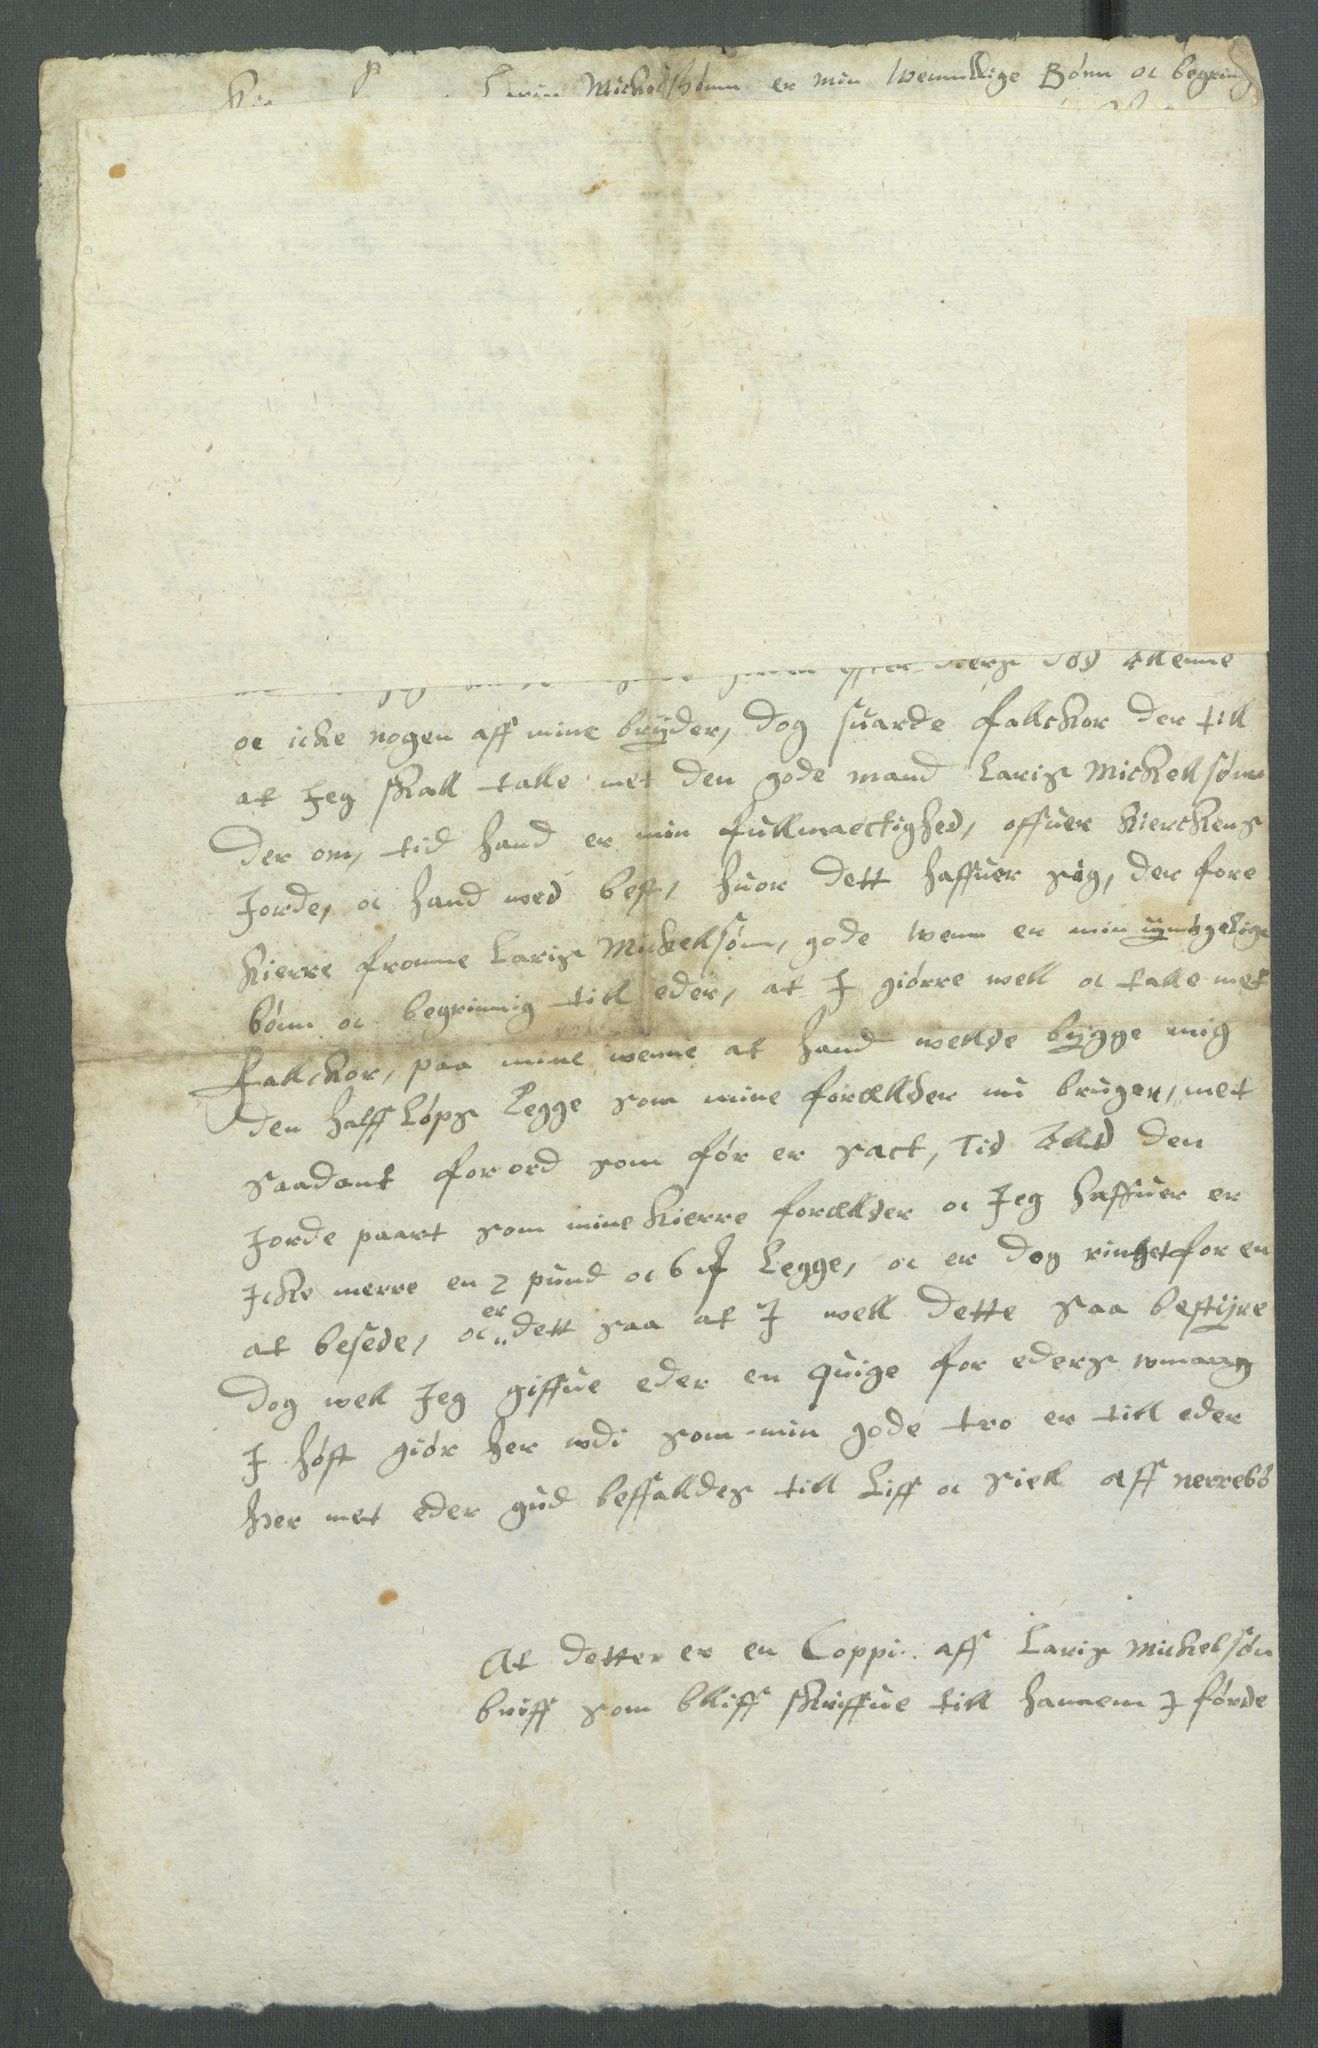 Mickelsønn er min wennllige Bønn oc begering
effter ders død Allenne
oc icke nogen aff mine brÿder, dog suarde fallckor der till
at Jeg skall talle met den gode mand Laris Mickellsønn
der om, tid hand er min fullmaectighed, offuer kierckens
Jorde, oc hand wed best, huor dett haffuer sig, der fore
kierre fromme Laris Mickellsønn, gode wenn er min ÿmÿgelige
bønn oc begrinnig till eder, at I giörre well oc talle met
fallckor, paa mine wenne at hand wellde bÿgge mig
den halff Løps Legge som mine forællder nu bruger, met
saadant forord som før er sact, Tid Alld den
Jorde paart som mine kierre forællder oc Jeg haffuer er
Icke merre en 2 pund oc 6 Legge, oc er dog ringhet for en
at besede, oc er dett saa at I well dette saa bestÿre
dog well Jeg giffue eder en quige for eders wmaag
I høst giör her wdi som min gode tro er till eder
her met eder gud beffalldes till Liff oc siell aff nerrebø
At dette er en Coppi aff Laris Mickelsøn
briff som bliff skriffue till hannem I førde